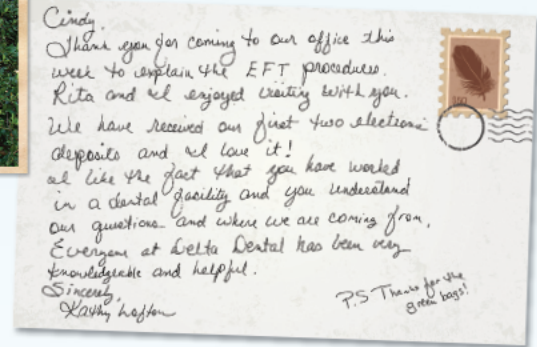 Cindy,
Thank you for coming to our office this
week to explain the EFT procedures.
Rita and I enjoyed visiting with you.
We have received our first two electronic
deposits and I love it!
I like the fact that you have worked
in a dental facility and you understand
our questions and where we are coming from.
Everyone at Delta Dental has been very
knowledgeable and helpful.
Sincerely,
Kathy Lofton
P.S Thanks for the
green bags!